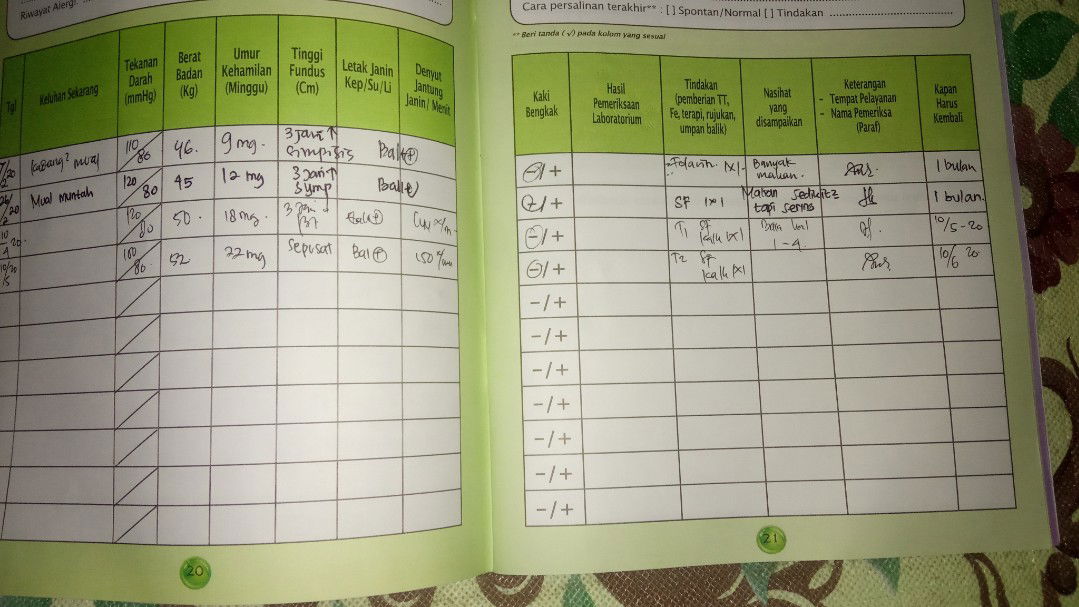 Riwayat Alergi
Cara persalinan terakhir** : [ ] Spontan/Normal [ ] Tindakan
** Beri tanda (√) pada kolom yang sesuai
Tgl
Keluhan Sekarang
Tekanan
Darah
(mmHg)
Berat
Badan
(Kg)
Umur
Kehamilan
(Minggu)
Tinggi
Fundus
(Cm)
Letak Janin
Kep/Su/Li
Denyut
Jantung
Janin/ Menit
Kaki
Bengkak
Hasil
Pemeriksaan
Laboratorium
Tindakan
(pemberian TT,
Fe, terapi, rujukan,
umpan balik)
Nasihat
yang
disampaikan
Keterangan
- Tempat Pelayanan
- Nama Pemeriksa
(Paraf)
Kapan
Harus
Kembali
mual
110/80
46.
9 mg.
3 jari ↑
simpisis
Ball (+)
- / +
1x1
Banyak
makan.
1 bulan
Mual muntah
120/80
45
12 mg
3 jari ↑
symp
Ball
- / +
SF 1x1
Makan sedikit2
tapi sering
1 bulan.
120/80
50.
18 mg.
3 jari
Ball (+)
- / +
T1 SF
kalk 1x1
1-4.
10/5-20
100/80
52
22 mg
Sepusat
Ball (+)
150 x/mnt
- / +
T2 SF
kalk 1x1
10/6 20
- / +
- / +
- / +
- / +
- / +
- / +
- / +
20
21